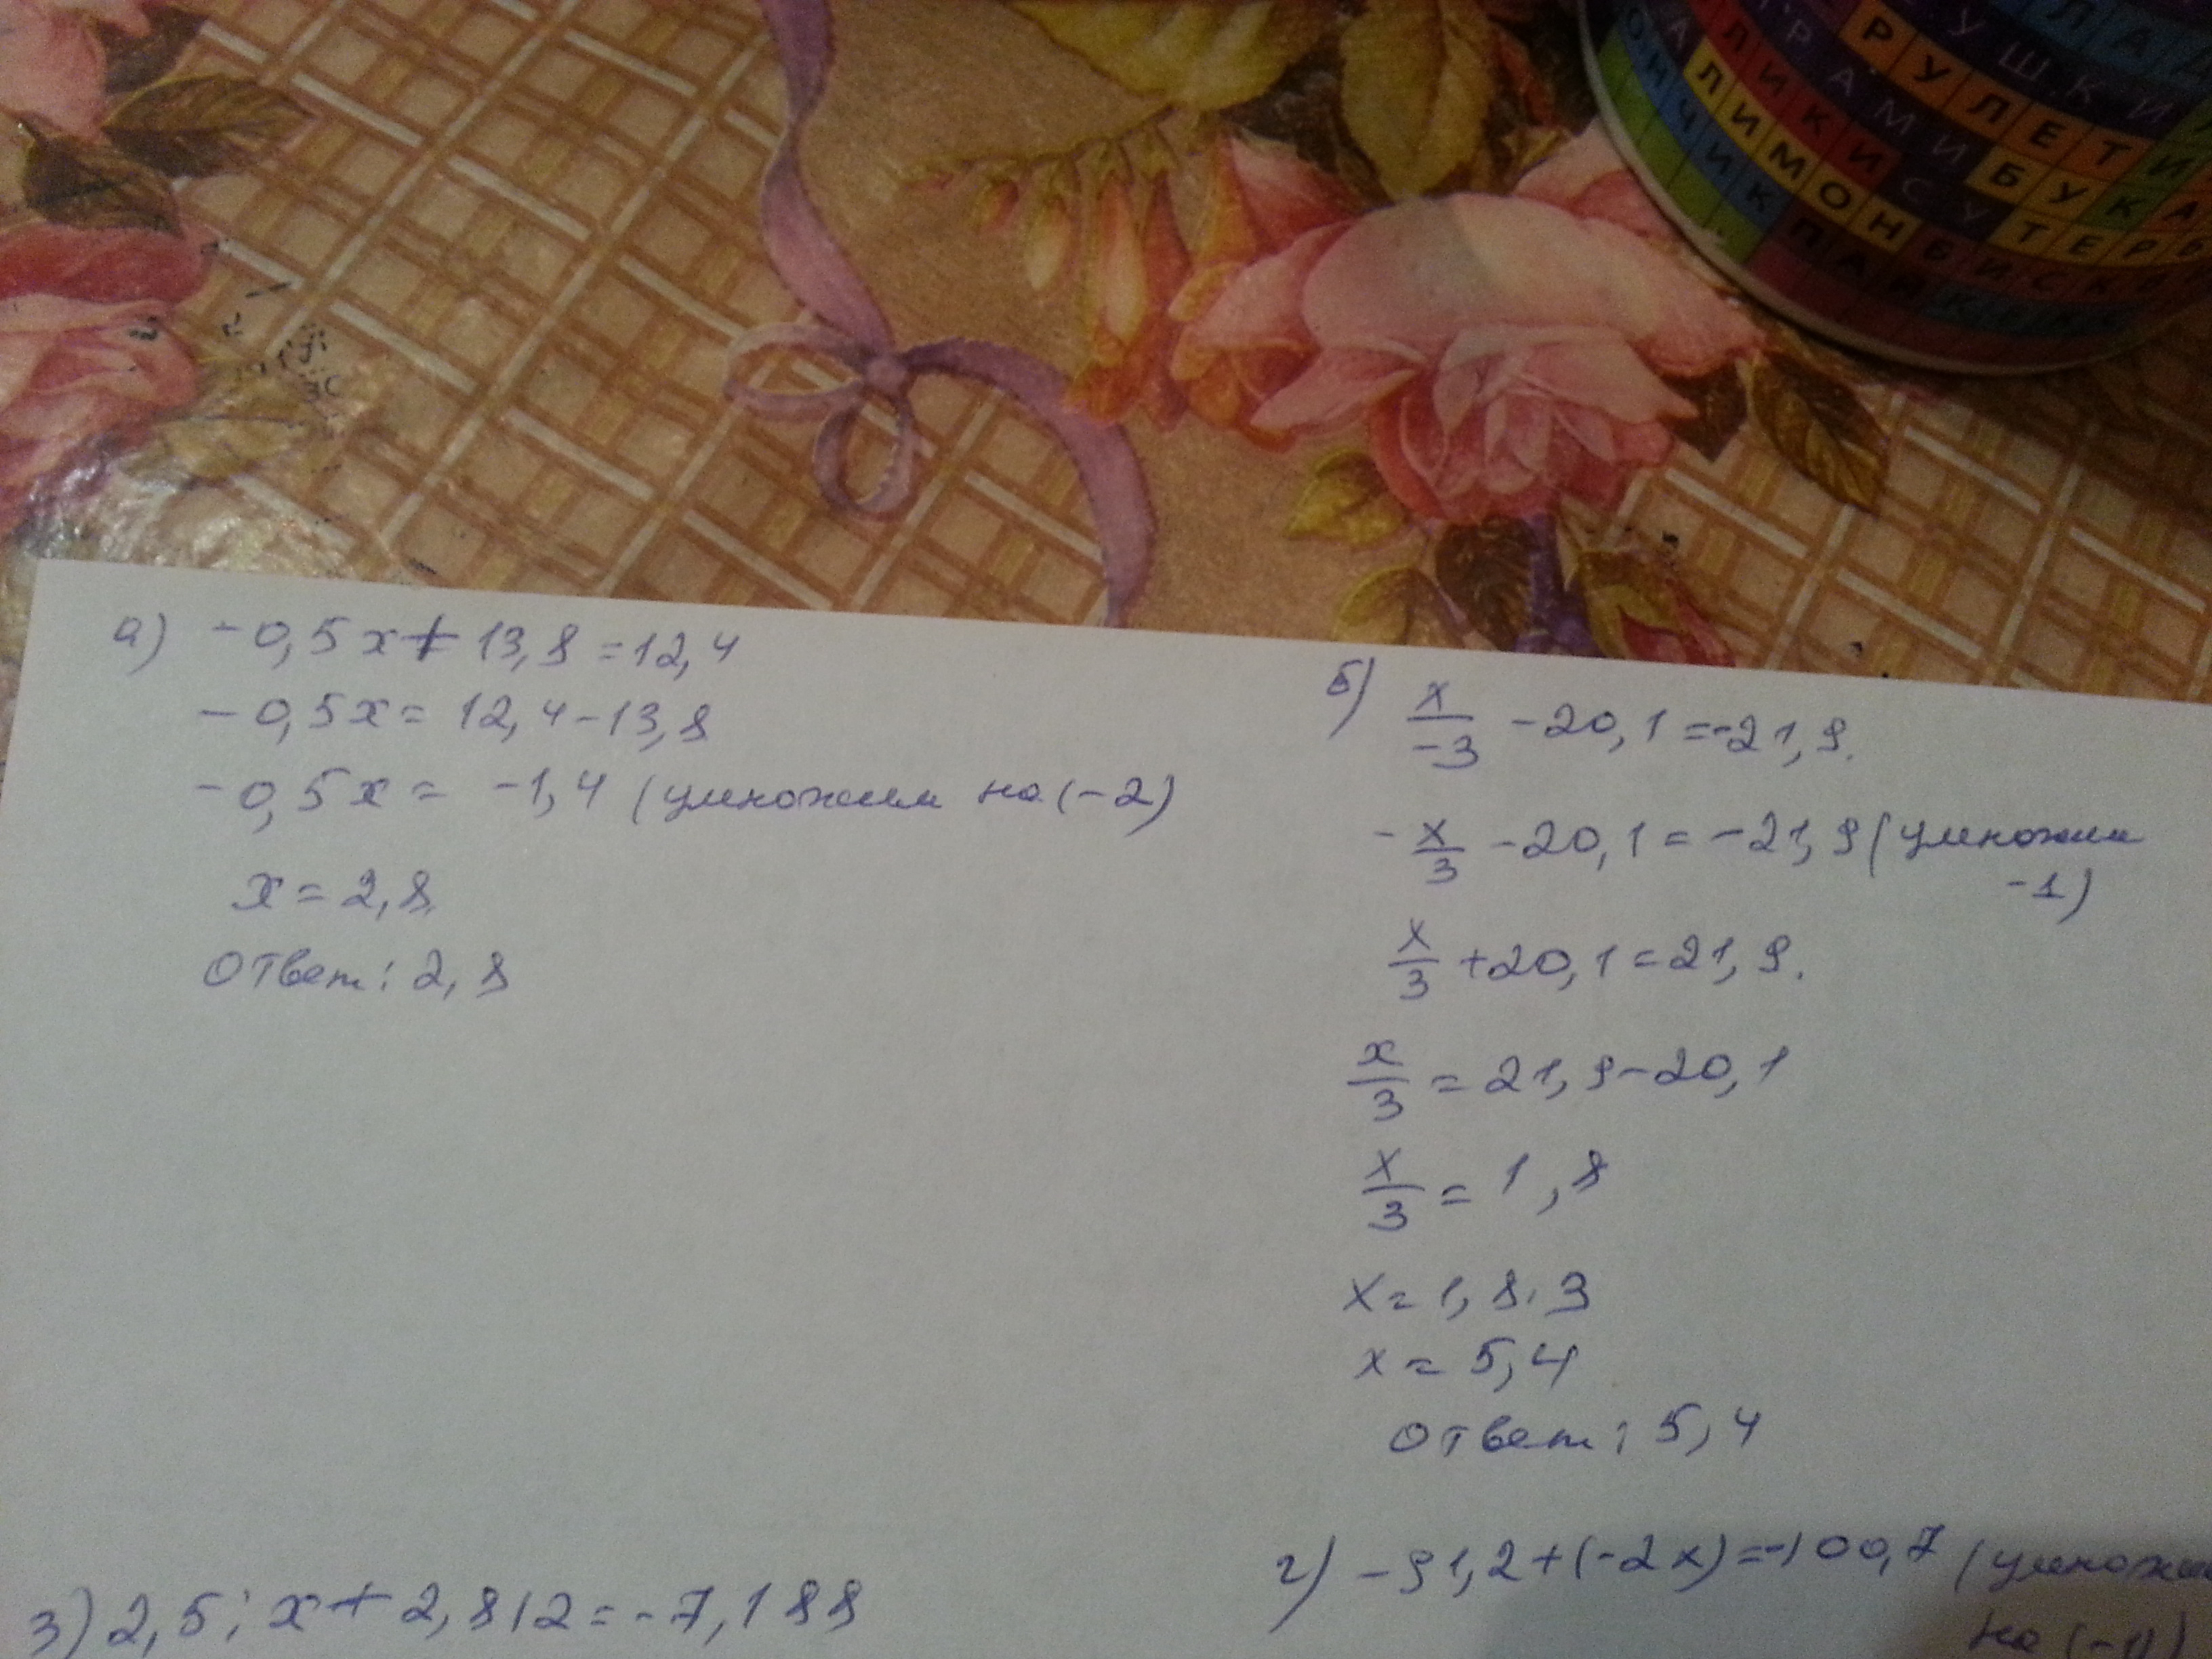 а) -0,5x + 13,8 = 12,4
-0,5x = 12,4 - 13,8
-0,5x = -1,4 (умножим на (-2)
x = 2,8
Ответ: 2,8
б) x/-3 - 20,1 = -21,9.
-x/3 - 20,1 = -21,9 (умножим
-1)
x/3 + 20,1 = 21,9.
x/3 = 21,9 - 20,1
x/3 = 1,8
x = 1,8 · 3
x = 5,4
Ответ: 5,4
з) 2,5 : x + 2,812 = -7,188
г) -91,2 + (-2x) = -100,7 (умножим
на (-1)
УШКИ
РУЛЕТИ
РАМИБУКА
ЛИКИСУТЕРБ
ЛИМОНБИСК
ОНЧИКПАИ